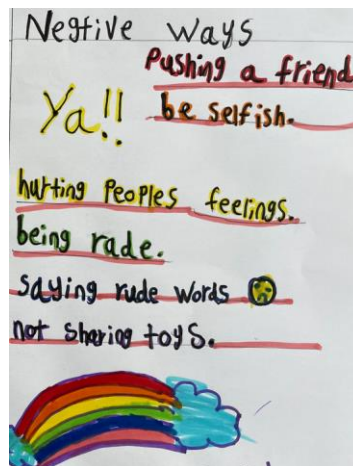 Negtive Ways
Pushing a friend
Ya!!
be selfish.
hurting Peoples feelings.
being rade.
saying rude words
not sharing toys.